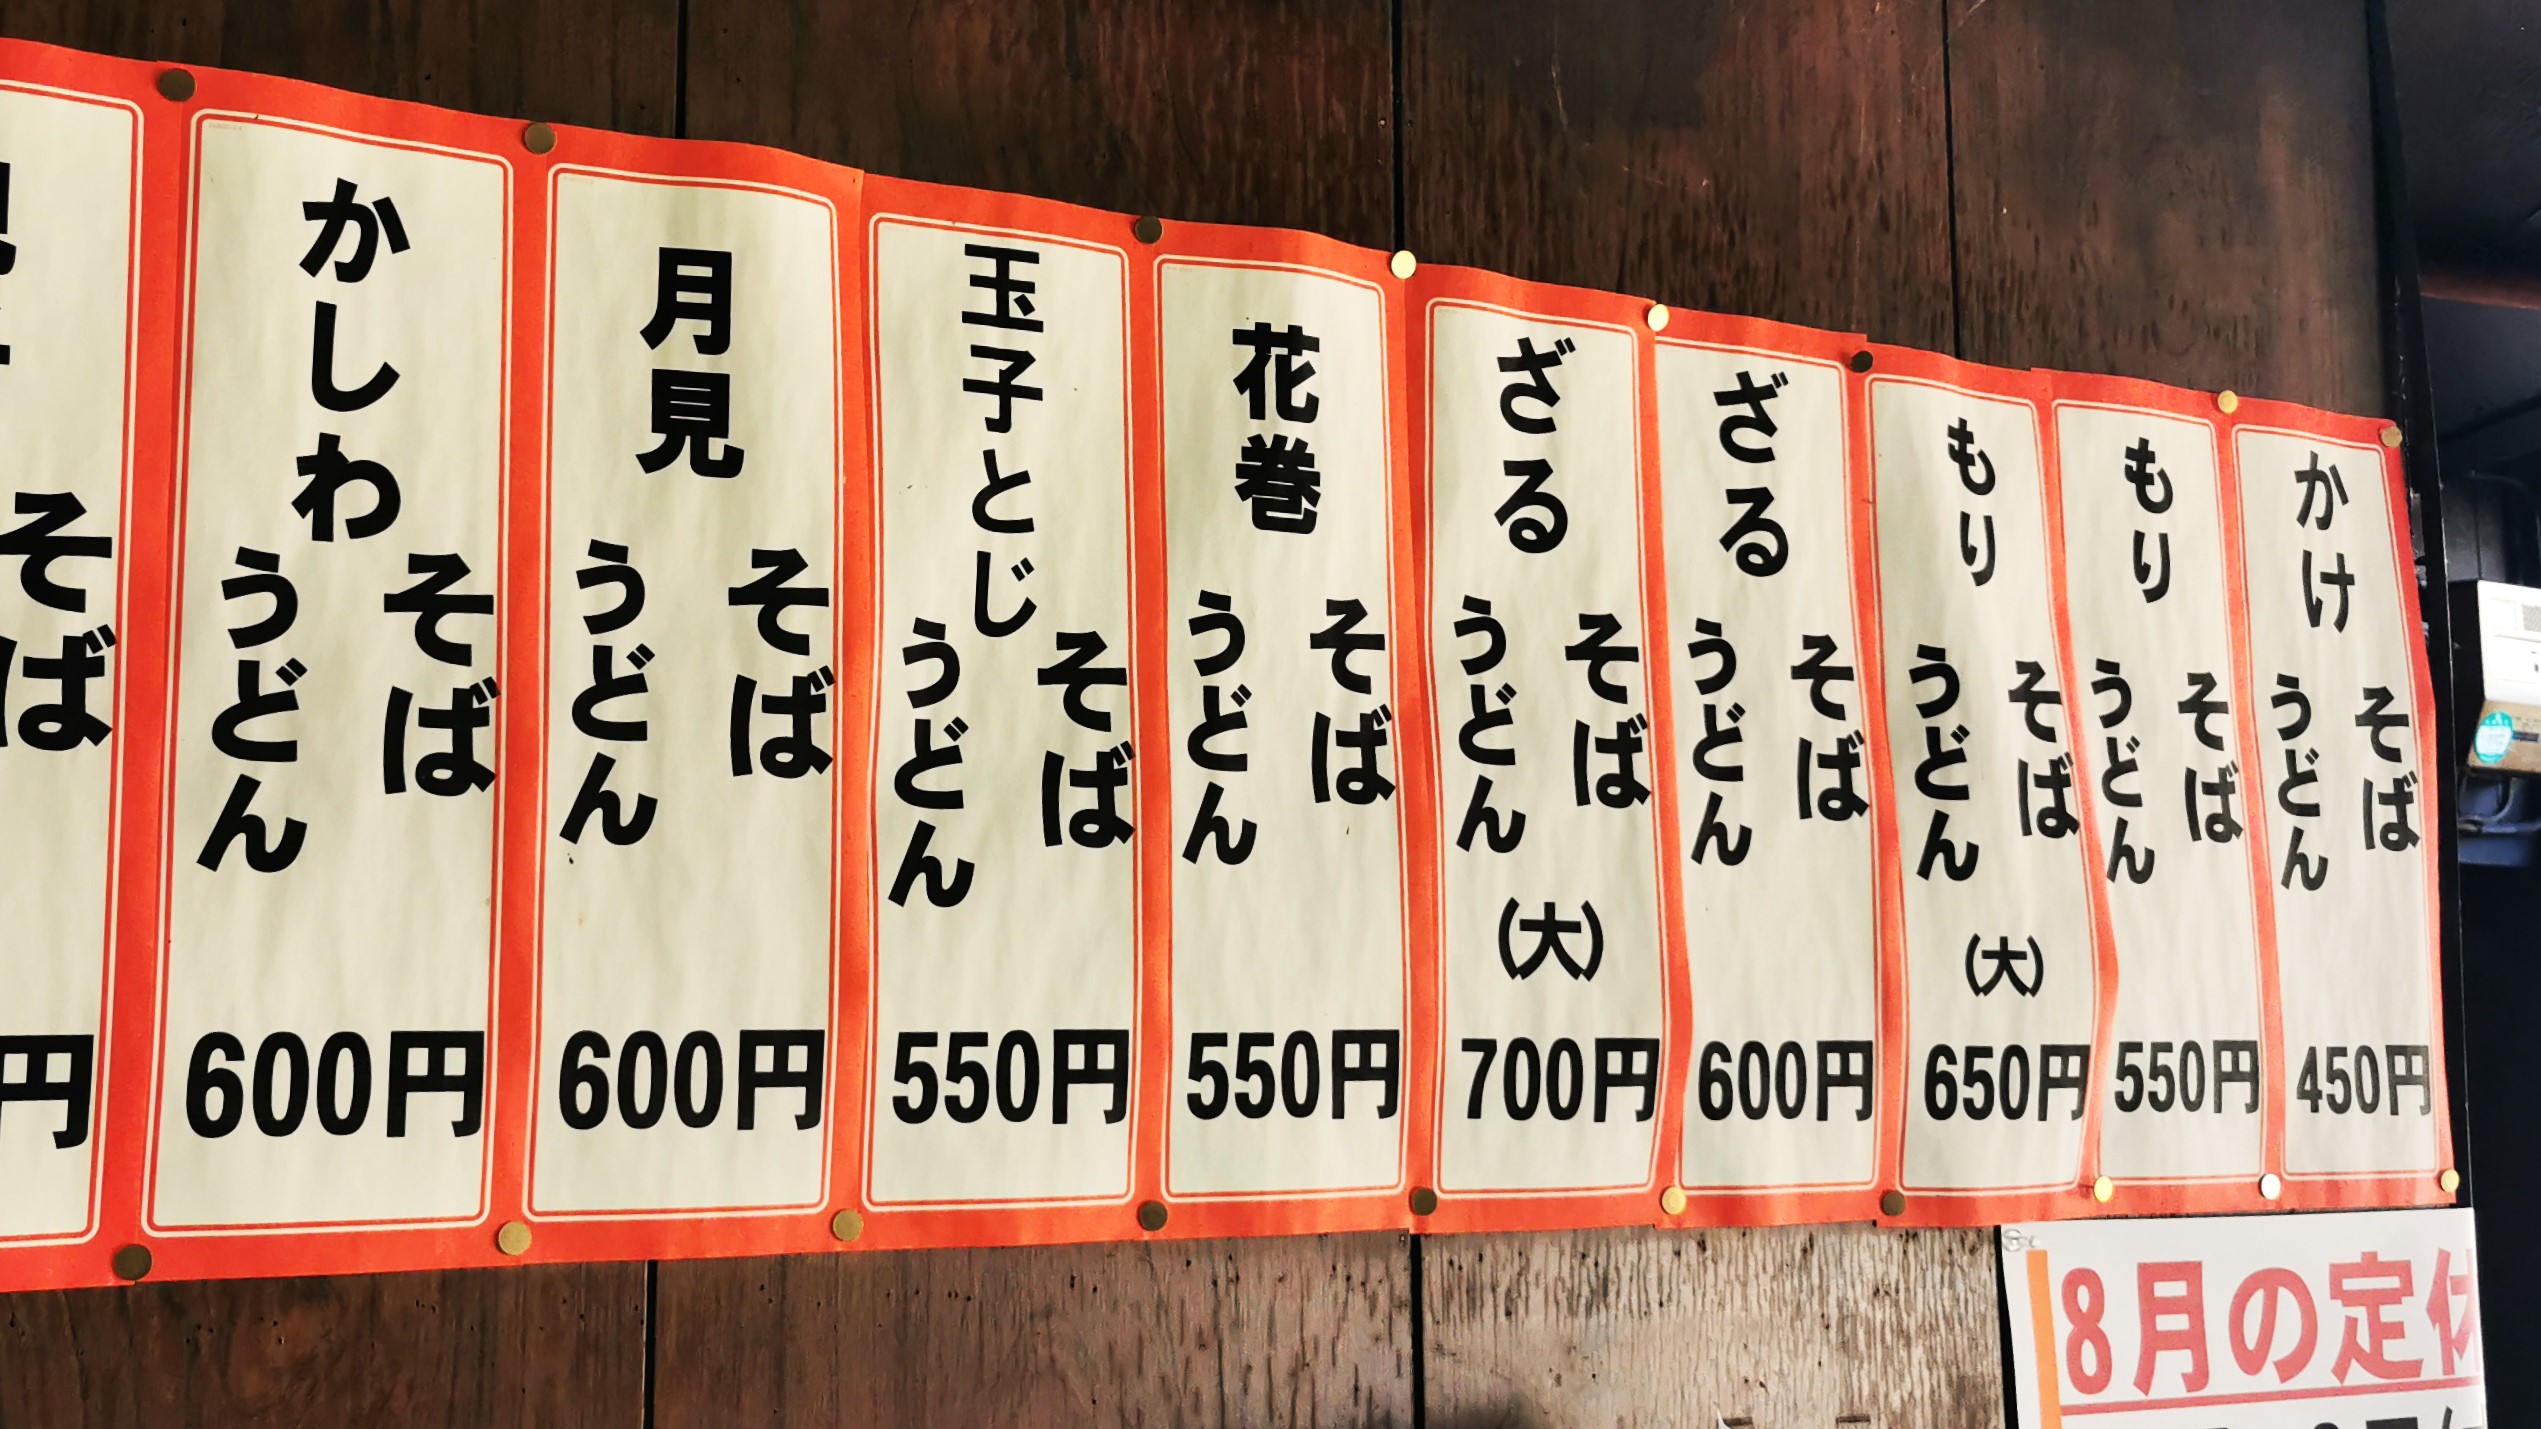 かけ
そば
うどん
450円
もり
そば
うどん
550円
もり
そば
うどん
(大)
650円
ざる
そば
うどん
600円
ざる
そば
うどん
(大)
700円
花巻
そば
うどん
550円
玉子とじ
そば
うどん
550円
月見
そば
うどん
600円
かしわ
そば
うどん
600円
そば
円
8月の定休